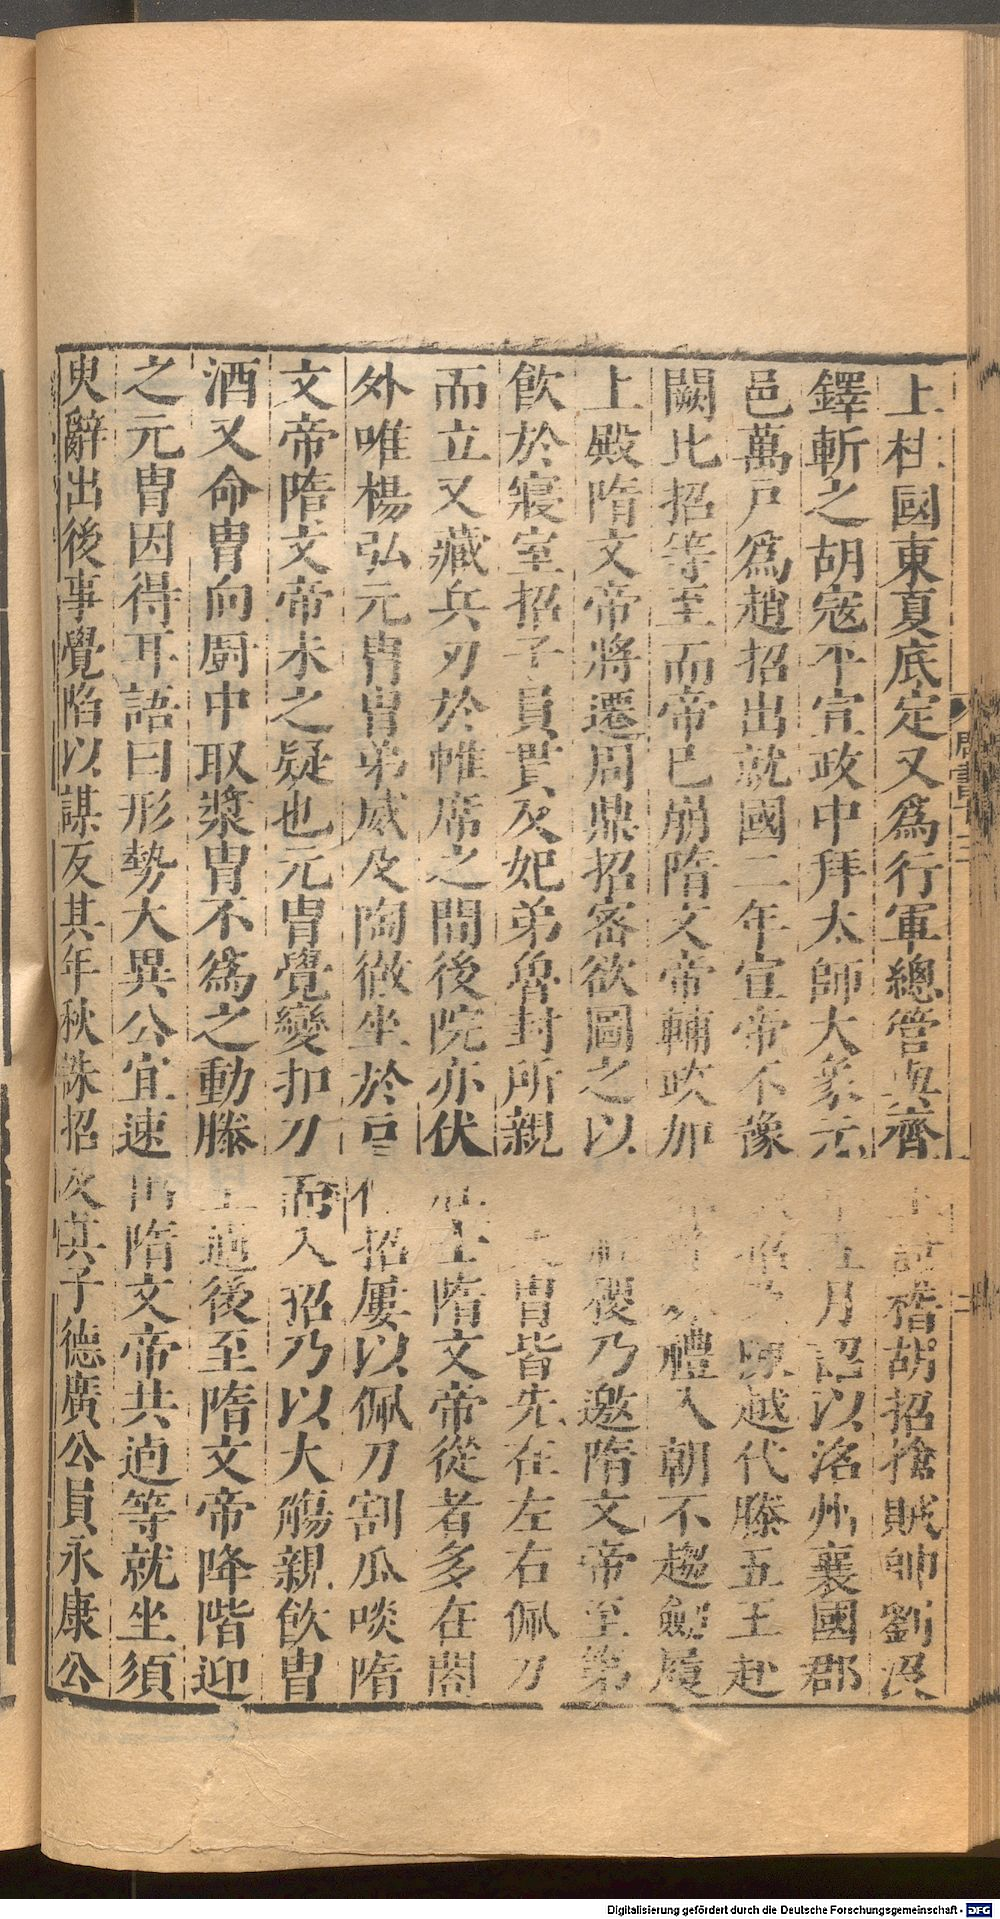 上柱國東夏底定又爲行軍總管與齊討稽胡招擒賊帥劉沒
鐸斬之胡寇平宣政中拜太師大象元五月詔以洺州襄國郡
邑萬戶爲趙招出就國二年宣帝不豫招及陳越代滕五王赴
闕比招等至而帝已崩隋文帝輔政加禮入朝不趨劒履
上殿隋文帝將遷周鼎招密欲圖之以稷乃邀隋文帝至第
飲於寢室招子員貫及妃弟魯封所親胄皆先在左右佩刀
而立又藏兵刃於帷席之間後院亦伏壯士隋文帝從者多在閤
外唯楊弘元冑冑弟威及陶徹坐於戶側招屢以佩刀割瓜啖隋
文帝隋文帝未之疑也元冑覺變扣刀而入招乃以大觴親飲冑
酒又命冑向廚中取漿冑不爲之動滕王逌後至隋文帝降階迎
之元冑因得耳語曰形勢大異公宜速出隋文帝共逌等就坐須
臾辭出後事覺陷以謀反其年秋誅招及其子德廣公員永康公
周書十三
Digitalisierung gefördert durch die Deutsche Forschungsgemeinschaft - DFG